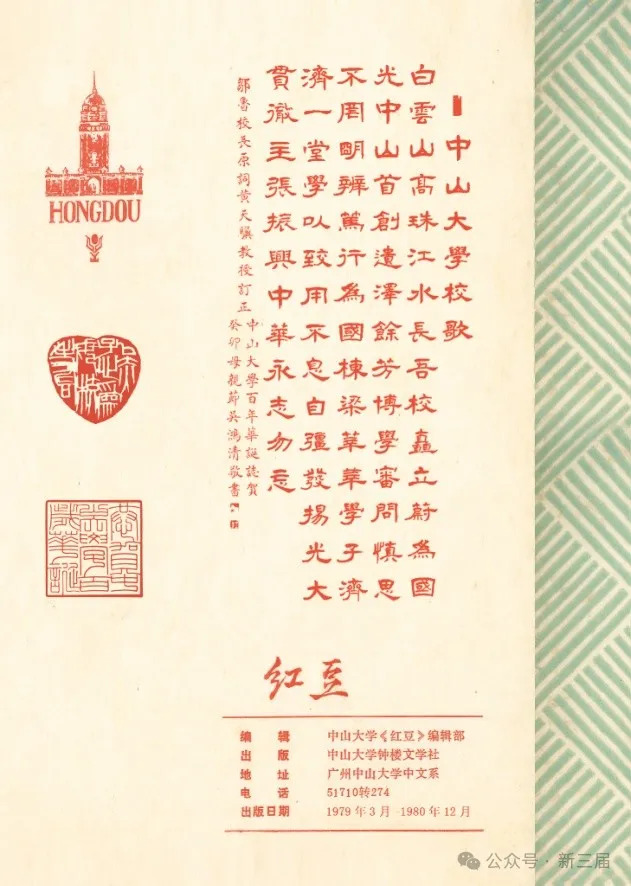 中山大學校歌
白雲山高珠江水長吾校矗立蔚為國
光中山首創遺澤餘芳博學審問慎思
不罔明辨篤行為國棟梁莘莘學子濟
濟一堂學以致用不息自彊發揚光大
貫徹主張振興中華永志勿忘
鄒魯校長原詞黃天驥教授訂正
中山大學百年華誕誌賀
癸卯母親節吳鴻清敬書
HONGDOU
红豆
编辑 中山大学《红豆》编辑部
出版 中山大学钟楼文学社
地址 广州中山大学中文系
电话 51710转274
出版日期 1979年3月-1980年12月
公众号·新三届